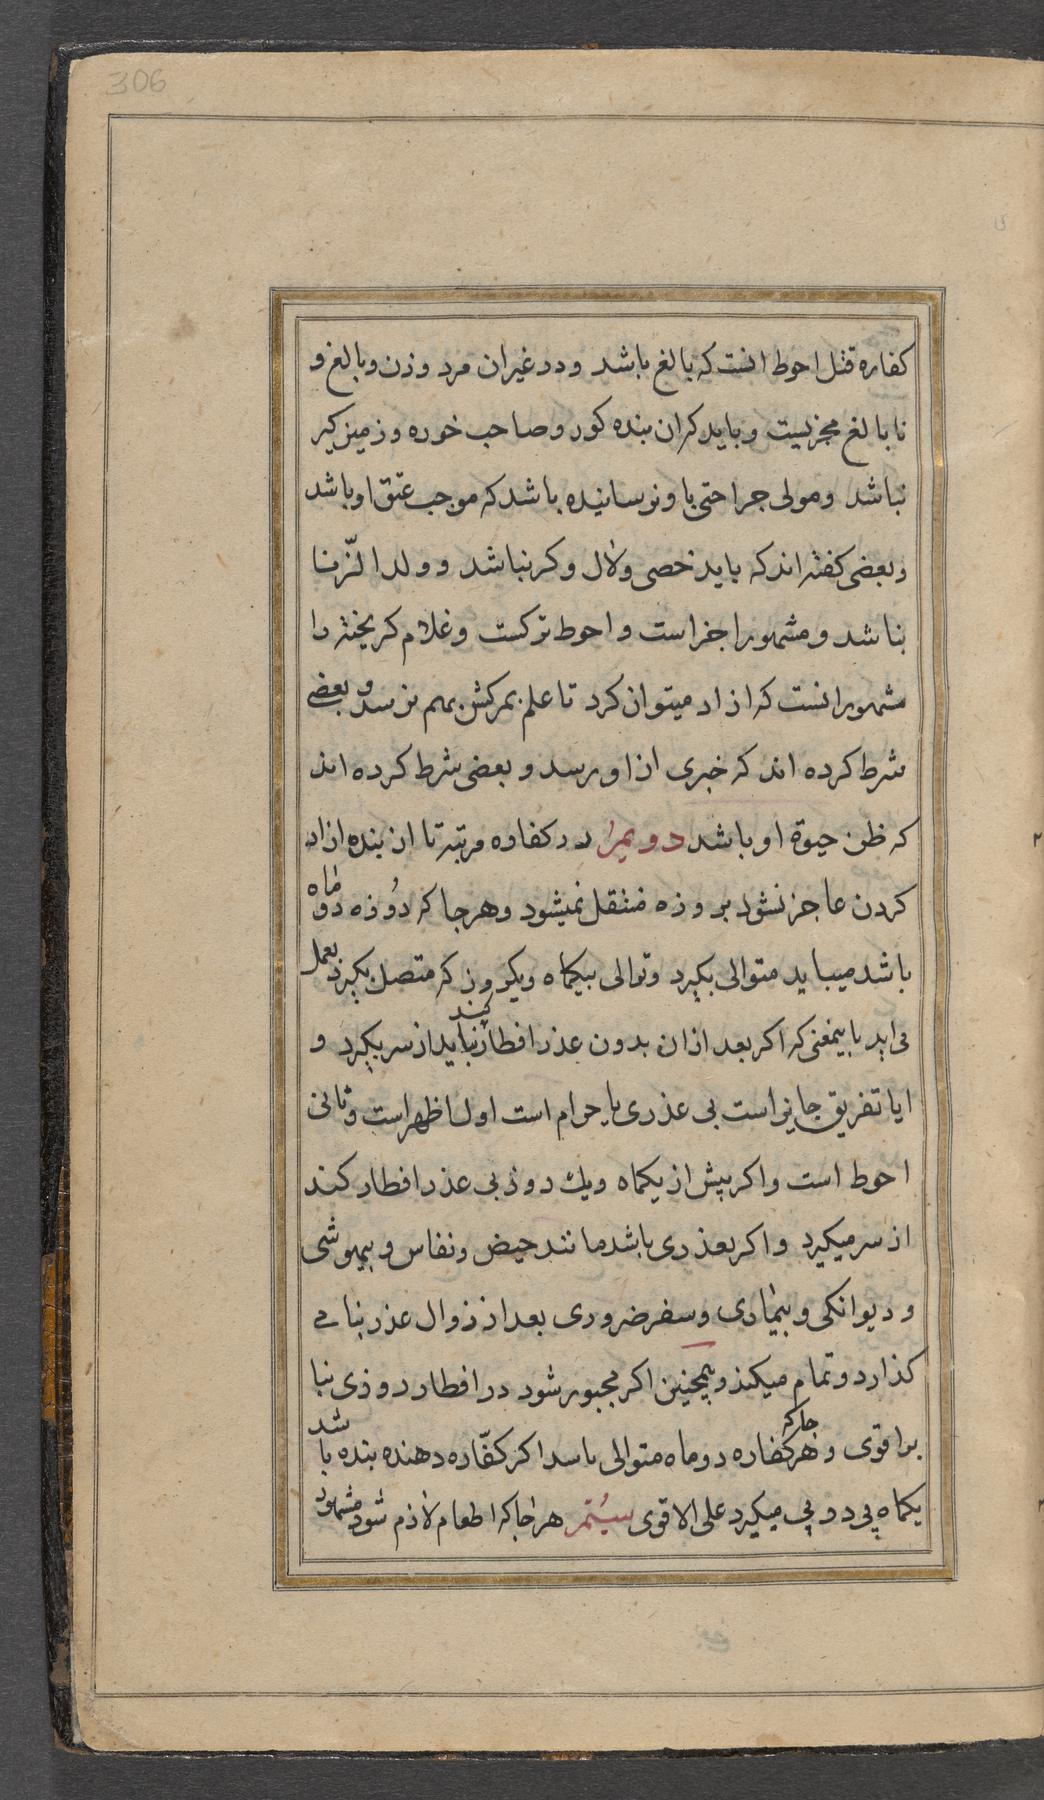 306
كفاره قتل احوط انست كه بالغ باشد ودر غیر ان مرد وزن وبالغ و
نا بالغ مجزیست وباید كه ان بنده كور وصاحب خوره وزمین كیر
نباشد ومولی جراحتی باو نرسانیده باشد كه موجب عتق او باشد
وبعضی كفته اند كه باید خصی ولال وكر نباشد وولد الزّنا
نباشد ومشهور اجزاست واحوط تركست وغلام كریخته را
مشهور انست كه ازاد میتوان كرد تا علم بمركش بهم نرسد وبعضی
شرط كرده اند كه خبری از او برسد وبعضی شرط كرده اند
كه ظن حیوة او باشد دویم در كفاره مرتبه تا از بنده ازاد
كردن عاجز نشود بروزه منتقل نمیشود وهرجا كه روزه دو ماه
باشد میباید متوالی بكیرد وتوالی بیكماه ویكروز كه متصل بكیرد بعمل
می اید باینمعنی كه اكر بعد از ان بدون عذر افطار كند نباید از سر بكیرد و
ایا تفریق جایز است بی عذری یا حرام است اول اظهر است وثانی
احوط است واكر پیش از یكماه ویك روز بی عذر افطار كند
از سر میكیرد واكر بعذری باشد مانند حیض ونفاس وبیهوشی
ودیوانكی وبیماری وسفر ضروری بعد از زوال عذر بنا می
كذارد وتمام میكند وهمچنین اكر مجبور شود در افطار روزی بنا
بر اقوی وهرجا كه كفاره دو ماه متوالی باشد اكر كفّاره دهنده بنده باشد
یكماه پی در پی میكیرد علی الاقوی سیّم هرجا كه اطعام لازم شود مشهور